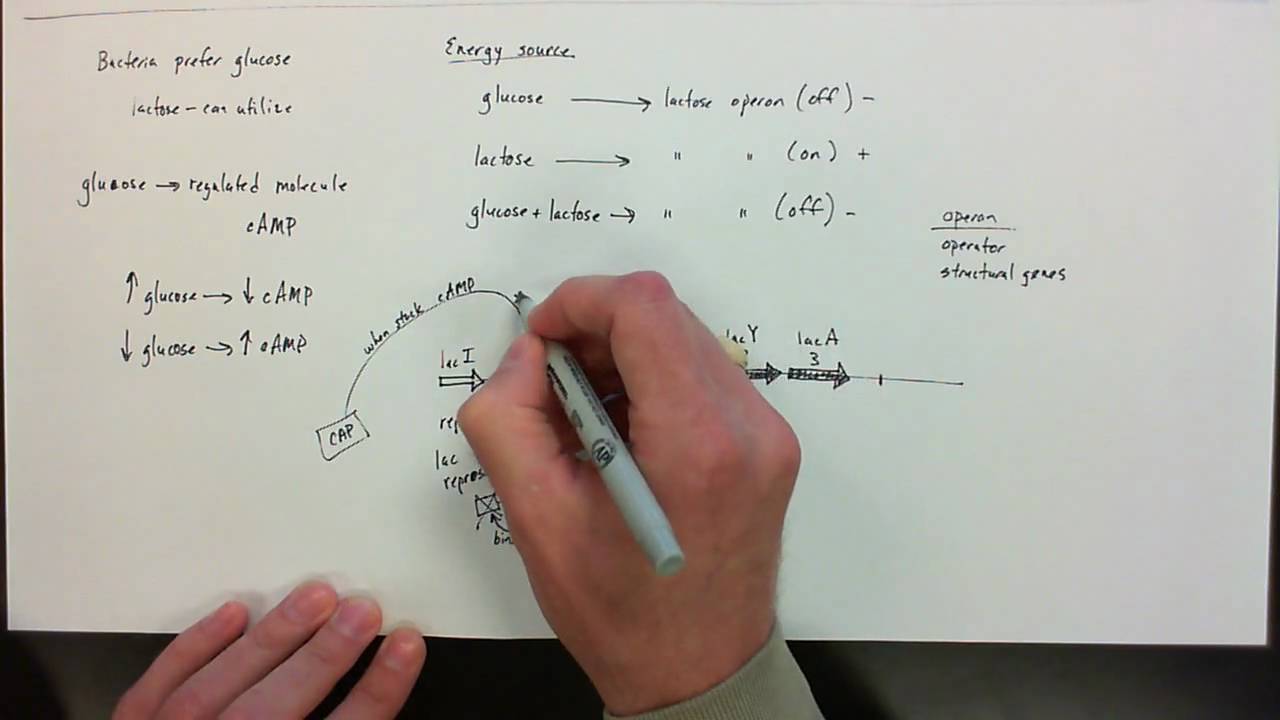 Bacteria prefer glucose
lactose - can utilize
glucose → regulated molecule
cAMP
↑ glucose → ↓ cAMP
↓ glucose → ↑ cAMP
Energy source
glucose → lactose operon (off) -
lactose → " " (on) +
glucose + lactose → " " (off) -
operon
operator
structural genes
when stuck cAMP
CAP
lac I
lac Y
lac A
3
lac